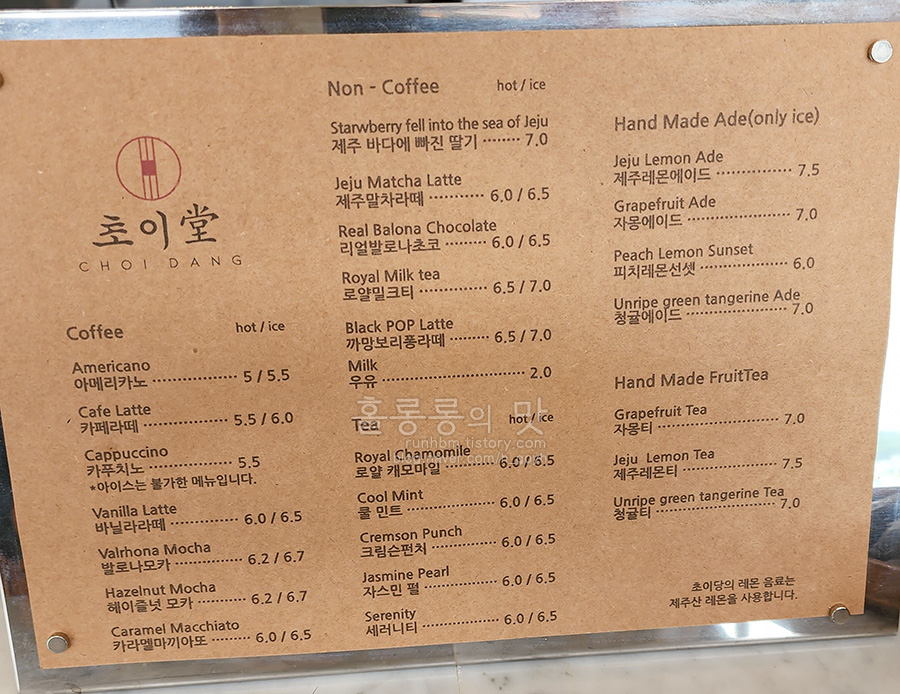 초이堂
CHOI DANG
Coffee hot / ice
Americano
아메리카노 ·············· 5 / 5.5
Cafe Latte
카페라떼 ·············· 5.5 / 6.0
Cappuccino
카푸치노 ·············· 5.5
*아이스는 불가한 메뉴입니다.
Vanilla Latte
바닐라라떼 ·············· 6.0 / 6.5
Valrhona Mocha
발로나모카 ·············· 6.2 / 6.7
Hazelnut Mocha
헤이즐넛 모카 ·········· 6.2 / 6.7
Caramel Macchiato
카라멜마끼아또 ········ 6.0 / 6.5
Non - Coffee hot / ice
Starwberry fell into the sea of Jeju
제주 바다에 빠진 딸기 ········ 7.0
Jeju Matcha Latte
제주말차라떼 ··········· 6.0 / 6.5
Real Balona Chocolate
리얼발로나초코 ········ 6.0 / 6.5
Royal Milk tea
로얄밀크티 ·············· 6.5 / 7.0
Black POP Latte
까망보리퐁라떼 ········ 6.5 / 7.0
Milk
우유 ····························· 2.0
Tea hot / ice
Royal Chamomile
로얄 캐모마일 ·········· 6.0 / 6.5
Cool Mint
쿨 민트 ··················· 6.0 / 6.5
Cremson Punch
크림슨펀치 ·············· 6.0 / 6.5
Jasmine Pearl
자스민 펄 ················ 6.0 / 6.5
Serenity
세러니티 ················· 6.0 / 6.5
Hand Made Ade(only ice)
Jeju Lemon Ade
제주레몬에이드 ··············· 7.5
Grapefruit Ade
자몽에이드 ····················· 7.0
Peach Lemon Sunset
피치레몬선셋 ·················· 6.0
Unripe green tangerine Ade
청귤에이드 ····················· 7.0
Hand Made FruitTea
Grapefruit Tea
자몽티 ························· 7.0
Jeju Lemon Tea
제주레몬티 ····················· 7.5
Unripe green tangerine Tea
청귤티 ························· 7.0
초이당의 레몬 음료는
제주산 레몬을 사용합니다.
훌룽룽의 맛
runhbm.tistory.com